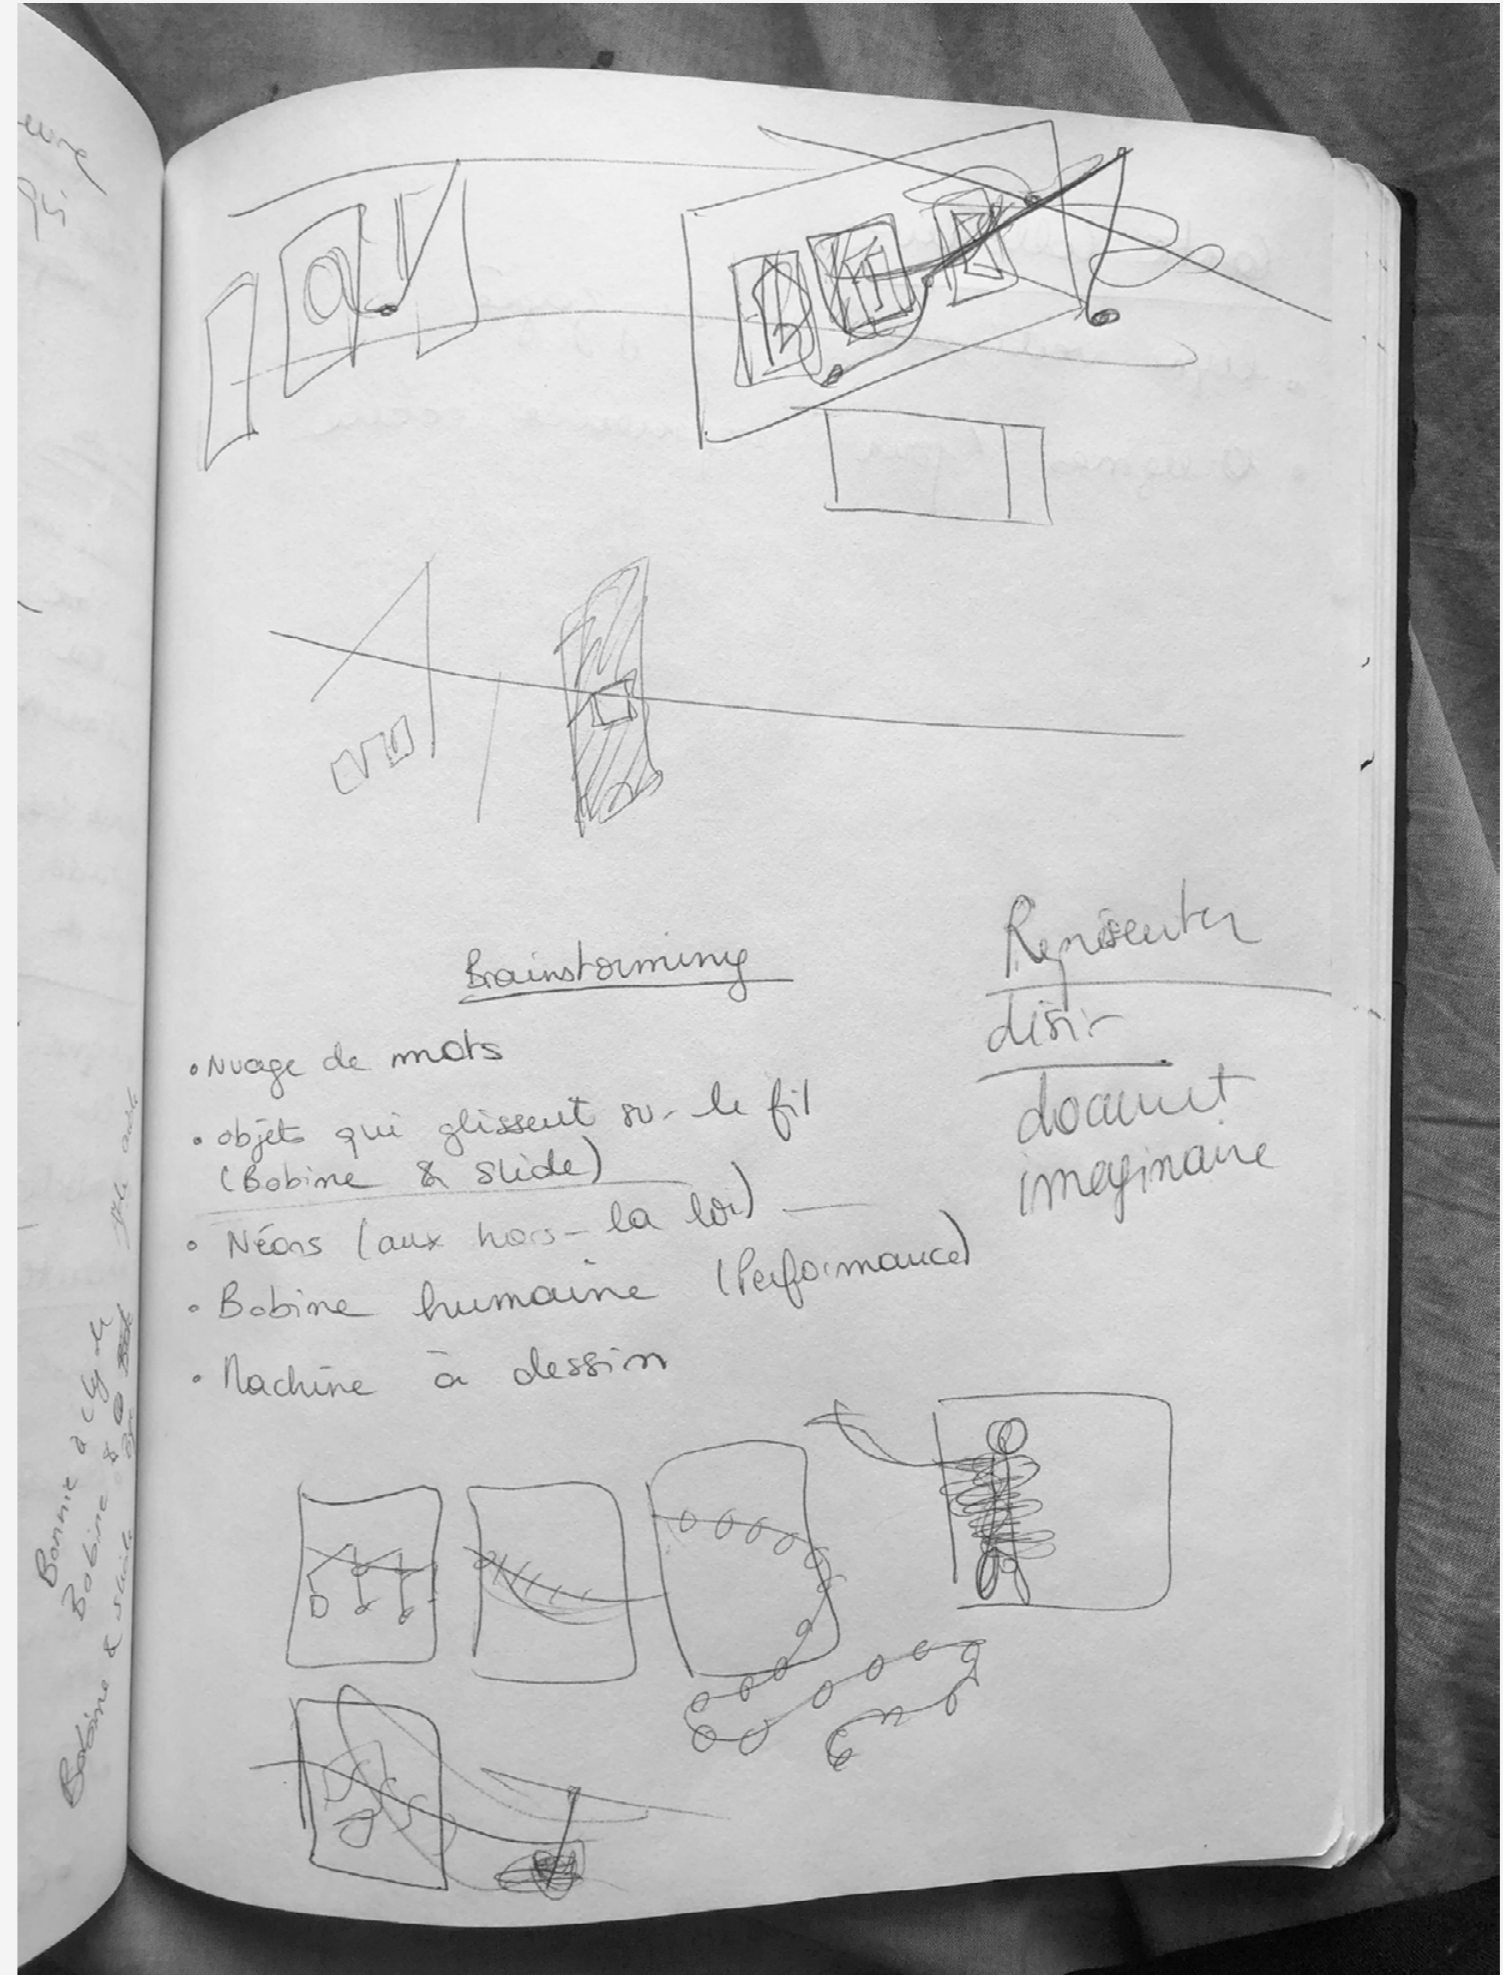 Brainstorming
• Nuage de mots
• objets qui glissent sur le fil
(Bobine & slide)
• Néons (aux hors-la loi)
• Bobine humaine (Performance)
• Machine à dessin
Représenter
désir
imaginaire
Bonnie & Clyde
Bobine &
Bobine & slide